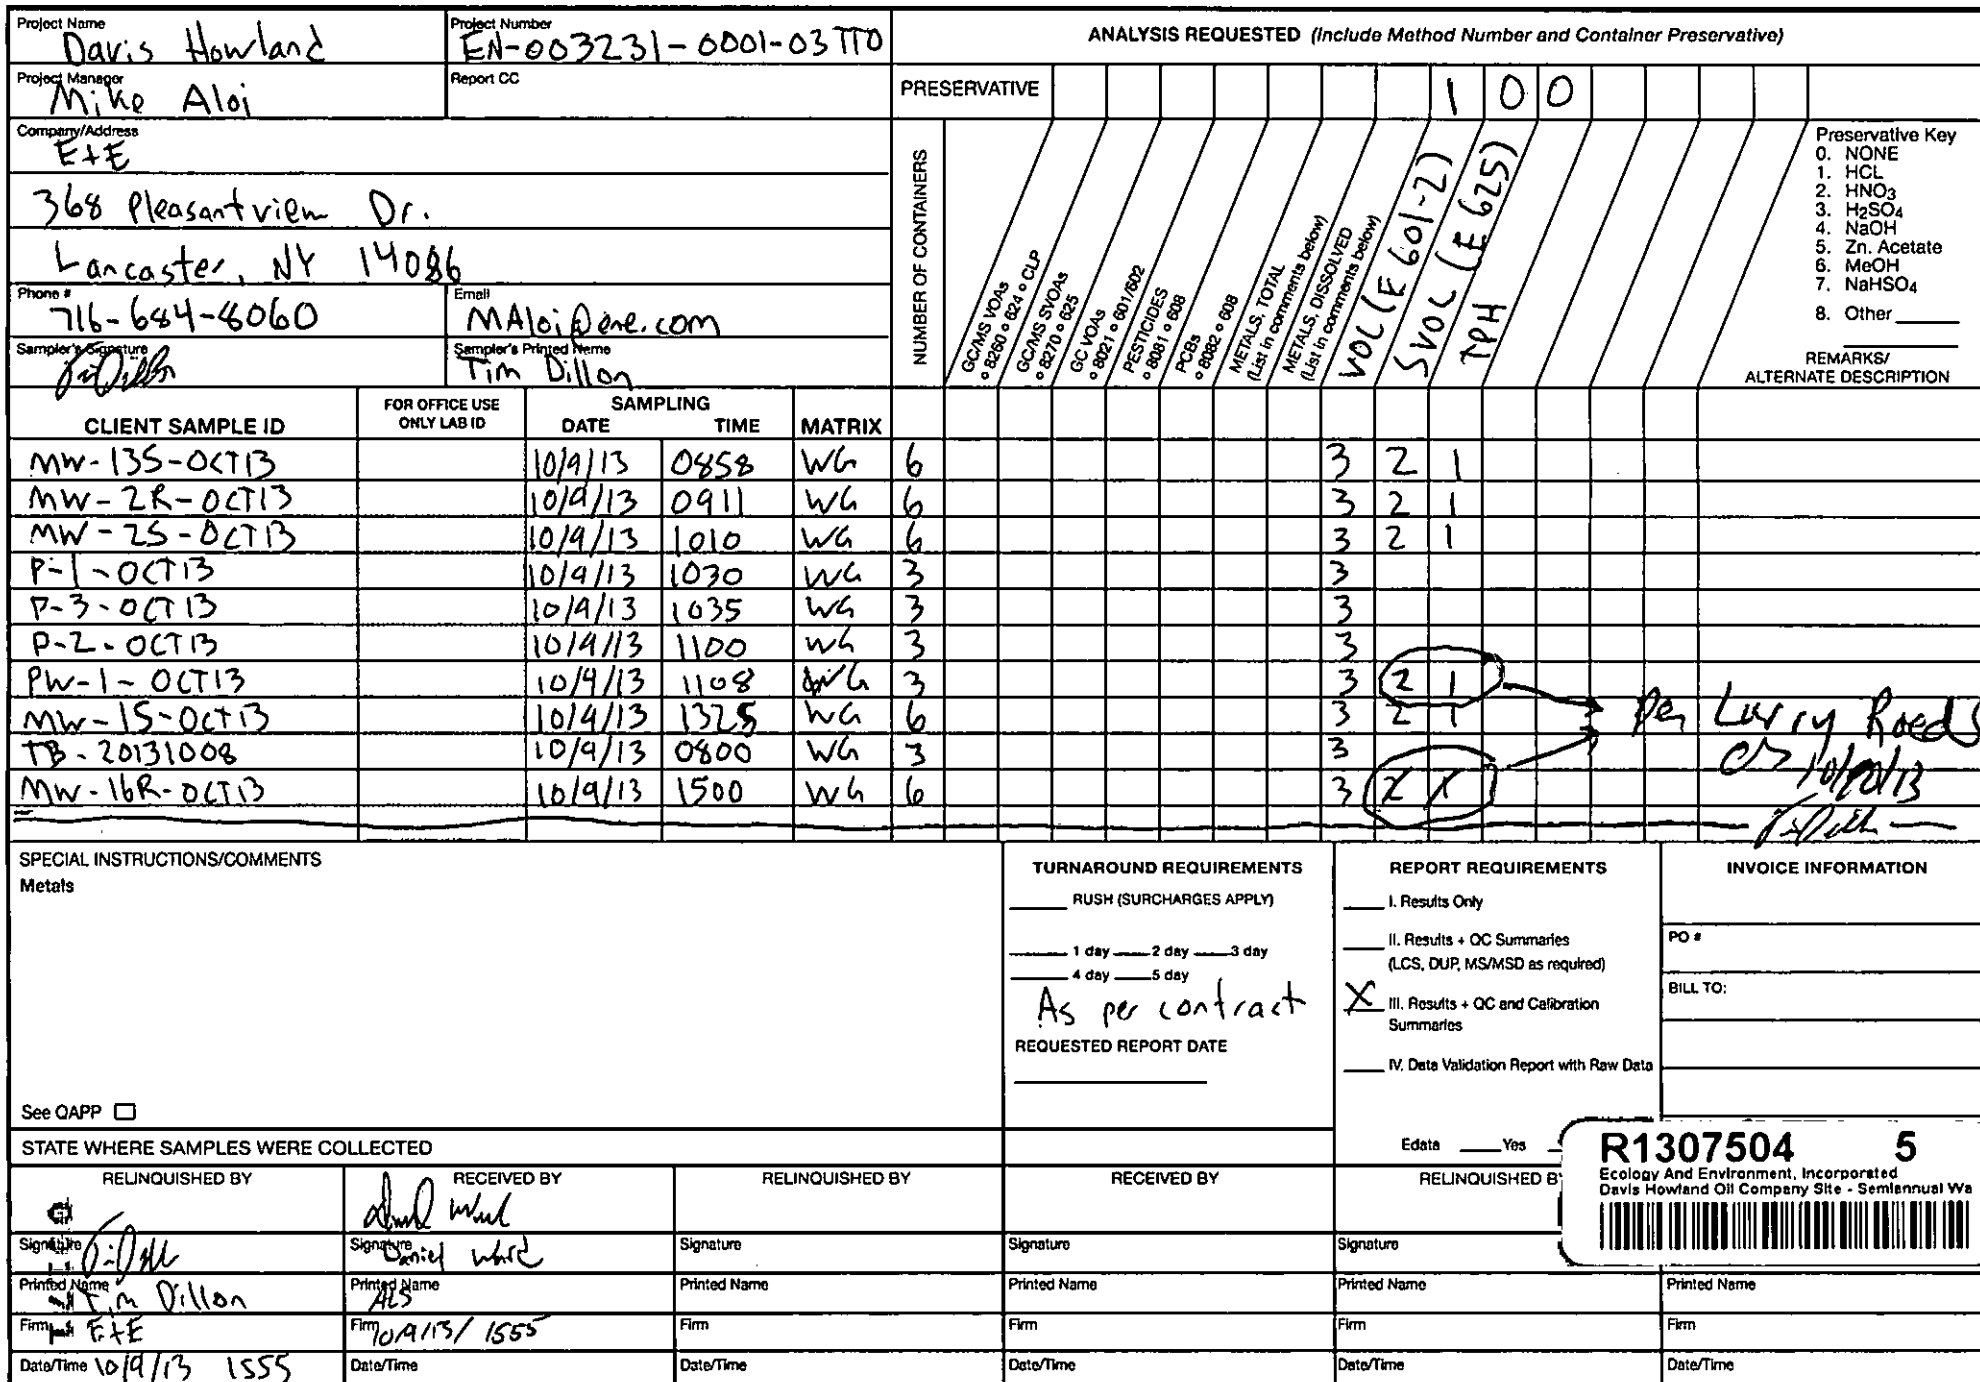 Project Name
Davis Howland
Project Number
EN-003231-0001-03TTO
ANALYSIS REQUESTED (Include Method Number and Container Preservative)
Project Manager
Mike Aloi
Report CC
PRESERVATIVE
1 0 0
Company/Address
E+E
368 Pleasantview Dr.
Lancaster, NY 14086
Phone #
716-684-8060
Email
MAloi@ene.com
Sampler's Signature
Sampler's Printed Name
Tim Dillon
NUMBER OF CONTAINERS
GC/MS VOAs
8260 624 CLP
GC/MS SVOAs
8270 625
GC VOAs
8021 601/602
PESTICIDES
8081 608
PCBs
8082 608
METALS, TOTAL
(List in comments below)
METALS, DISSOLVED
(List in comments below)
VOC (E 601-2)
SVOC (E 625)
TPH
Preservative Key
0. NONE
1. HCL
2. HNO3
3. H2SO4
4. NaOH
5. Zn. Acetate
6. MeOH
7. NaHSO4
8. Other
REMARKS/
ALTERNATE DESCRIPTION
CLIENT SAMPLE ID
FOR OFFICE USE
ONLY LAB ID
SAMPLING
DATE TIME
MATRIX
MW-13S-OCT13 10/9/13 0858 WG 6 3 2 1
MW-2R-OCT13 10/9/13 0911 WG 6 3 2 1
MW-2S-OCT13 10/9/13 1010 WG 6 3 2 1
P-1-OCT13 10/9/13 1030 WG 3 3
P-3-OCT13 10/9/13 1035 WG 3 3
P-2-OCT13 10/9/13 1100 WG 3 3
PW-1-OCT13 10/9/13 1108 WG 3 3 2 1
MW-1S-OCT13 10/9/13 1325 WG 6 3 2 1
Per Larry Roeds
TB-20131008 10/9/13 0800 WG 3 3
MW-16R-OCT13 10/9/13 1500 WG 6 3
SPECIAL INSTRUCTIONS/COMMENTS
Metals
See QAPP
TURNAROUND REQUIREMENTS
RUSH (SURCHARGES APPLY)
1 day 2 day 3 day
4 day 5 day
As per contract
REQUESTED REPORT DATE
REPORT REQUIREMENTS
I. Results Only
II. Results + QC Summaries
(LCS, DUP, MS/MSD as required)
X III. Results + QC and Calibration
Summaries
IV. Data Validation Report with Raw Data
Edata Yes
INVOICE INFORMATION
PO #
BILL TO:
R1307504 5
Ecology And Environment, Incorporated
Davis Howland Oil Company Site - Semiannual Wa
STATE WHERE SAMPLES WERE COLLECTED
RELINQUISHED BY RECEIVED BY RELINQUISHED BY RECEIVED BY RELINQUISHED B
Signature Signature Signature Signature Signature
Daniel Ward
Printed Name Printed Name Printed Name Printed Name Printed Name Printed Name
Tim Dillon ALS
Firm Firm Firm Firm Firm Firm
E+E 10/9/13/ 1555
Date/Time 10/9/13 1555 Date/Time Date/Time Date/Time Date/Time Date/Time